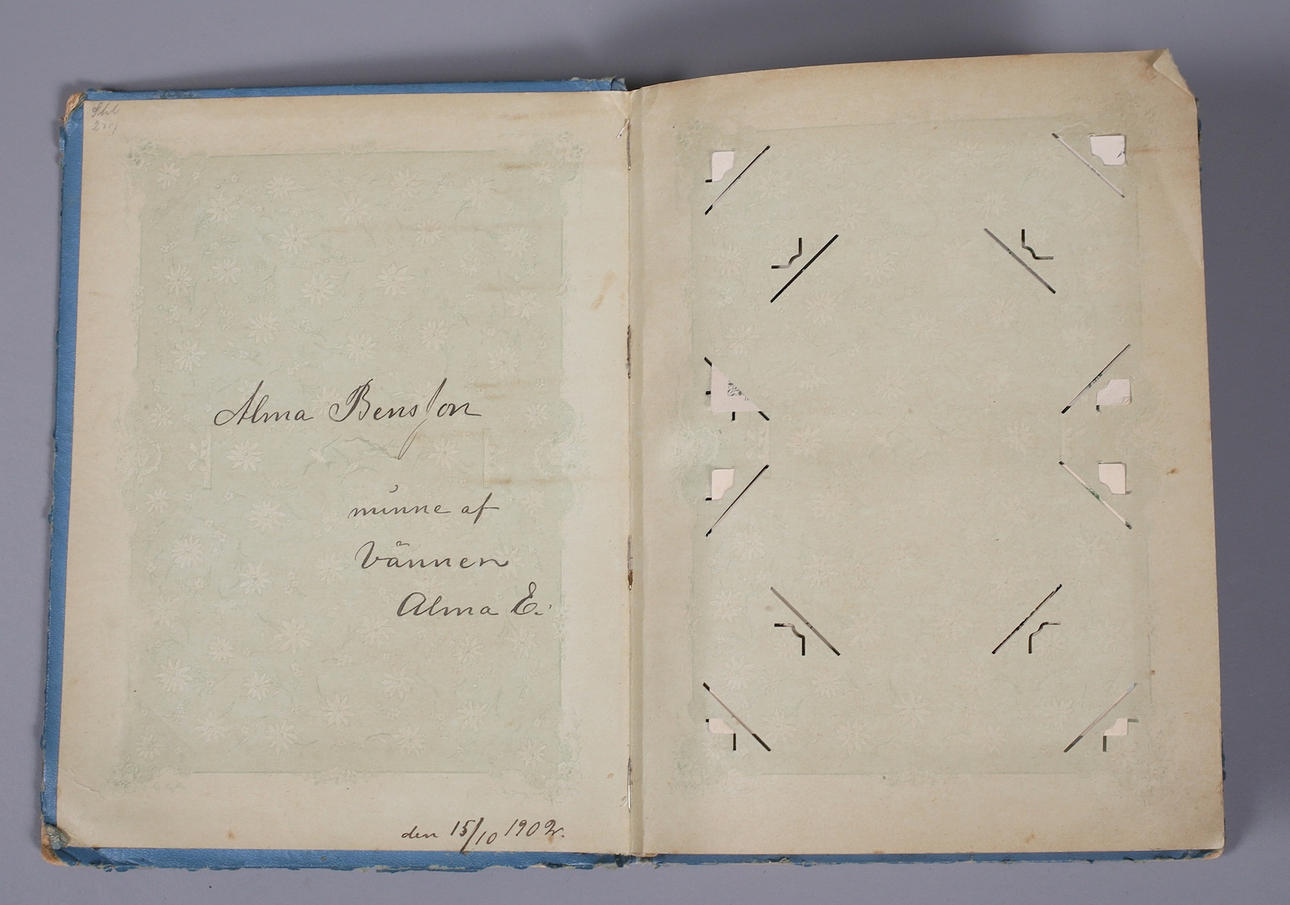 Alma Bensson
minne af
Vännen
Alma E.
den 15/10 1902.